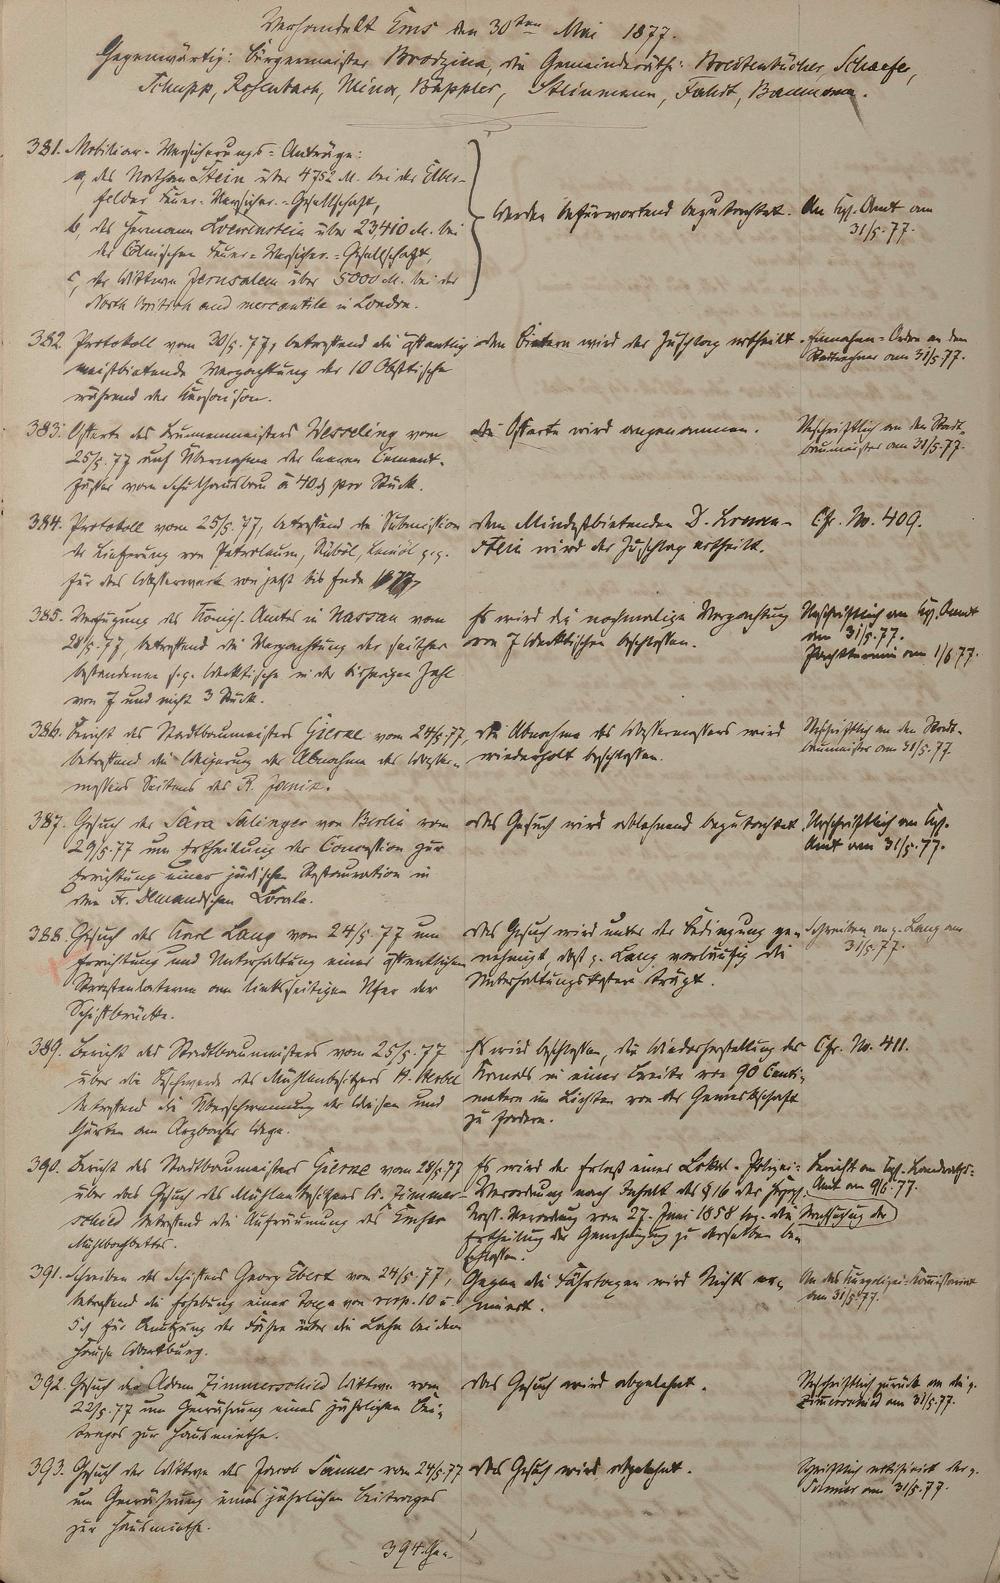 Verhandelt Ems den 30ten Mai 1877.
Gegenwärtig: Bürgermeister Brodzina, die Gemeinderäthe: Breitenbücher, Schaefer,
Schupp, Rosenbach, Minor, Bäppler, Steinmann, Fahdt, Baumann.
381. Mobiliar-Versicherungs-Anträge:
a, des Nathan Stein über 4752 M. bei der Elber-
felder Feuer-Versicher.-Gesellschaft,
b, des Hermann Loewenstein über 23,410 M. bei
der Cölnischen Feuer-Versicher.-Gesellschaft,
c, der Wittwe Jerusalem über 5000 M. bei der
North British and mercantile in London.
werden befürwortend begutachtet.
An Kgl. Amt am
31/5.77.
382. Protokoll vom 30/5.77, betreffend die öffentlich
meistbietende Verpachtung der 10 Obsttische
während der Kursaison.
den Bietern wird der Zuschlag ertheilt.
Einnahme-Ordre an den
Stadtrechner am 31/5.77.
383. Offerte des Brunnenmeisters Wesseling vom
25/5.77 auf Übernahme der leeren Cement-
fässer vom Schulhausbau à 40 d pro Stück.
die Offerte wird angenommen.
Urschriftlich an den Stadt-
baumeister am 31/5.77.
384. Protokoll vom 25/5.77, betreffend die Submission
der Lieferung von Petroleum, Rüböl, Leinöl p.p.
für das Wasserwerk von jetzt bis Ende 1877,
dem Mindestbietenden D. Loewen-
stein wird der Zuschlag ertheilt.
Cfr. No. 409.
385. Verfügung des Königl. Amtes in Nassau vom
28/5.77, betreffend die Verpachtung der seither
bestandenen s.g. Wecktische in der bisherigen Zahl
von 7 und nicht 3 Stück.
Es wird die nochmalige Verpachtung
von 7 Wecktischen beschlossen.
Urschriftlich an Kgl. Amt
am 31/5.77.
Pachttermin am 1/6.77.
386. Bericht des Stadtbaumeisters Gierne vom 24/5.77,
betreffend die Weigerung der Abnahme des Wasser-
messers Seitens des R. Janik.
die Abnahme des Wassermessers wird
wiederholt beschlossen.
Urschriftlich an den Stadt-
baumeister am 31/5.77.
387. Gesuch der Sara Salinger von Berlin vom
29/5.77 um Ertheilung der Concession zur
Errichtung einer jüdischen Restauration in
dem Fr. Lokale.
das Gesuch wird ablehnend begutachtet.
Urschriftlich an Kgl.
Amt am 31/5.77.
388. Gesuch des Karl Lang vom 24/5.77 um
Errichtung und Unterhaltung einer öffentlichen
Straßenlaterne am linksseitigen Ufer der
Schiffbrücke.
das Gesuch wird unter der Bedingung ge-
nehmigt, daß p. Lang vorläufig die
Unterhaltungskosten trägt.
Schreiben an p. Lang am
31/5.77.
389. Bericht des Stadtbaumeisters vom 25/5.77
über die Beschwerde des Mühlenbesitzers H.
betreffend die Überschwemmung der Wiesen und
Gärten am Arzbacher Wege.
Es wird beschlossen, die Wiederherstellung des
Kanals in einer Breite von 90 Centi-
metern im Lichten von der Gewerkschaft
zu fordern.
Cfr. No. 411.
390. Bericht des Stadtbaumeisters Gierne vom 28/5.77
über das Gesuch des Mühlenbesitzers W. Zimmer-
schied betreffend die Aufräumung des Emser
Mühlbachbettes.
Es wird der Erlaß einer Lokal-Polizei-
Verordnung nach Inhalt des § 16 der
Verordnung vom 27. Juni 1858 bezw. die Nachsuchung der
Ertheilung der Genehmigung zu derselben be-
schlossen.
Bericht an Kgl. Landraths-
Amt am 9/6.77.
391. Schreiben des Schiffers Georg Ebert vom 24/5.77,
betreffend die Erhebung einer Taxe von resp. 10 u.
5 d für Benutzung der Fähre über die Lahn bei dem
Hause Wartburg.
Gegen die Fährtaxen wird Nichts er-
innert.
An das Kurpolizei-Kommissariat
am 31/5.77.
392. Gesuch der Adam Zimmerschied Wittwe vom
22/5.77 um Gewährung eines jährlichen Bei-
trages zur Hausmiethe.
das Gesuch wird abgelehnt.
Urschriftlich zurück an die p.
Zimmerschied am 31/5.77.
393. Gesuch der Wittwe des Jacob Sauner vom 24/5.77
um Gewährung eines jährlichen Beitrages
zur Hausmiethe.
das Gesuch wird abgelehnt.
Schriftlich notifizirt der p.
am 31/5.77.
394. Ge-